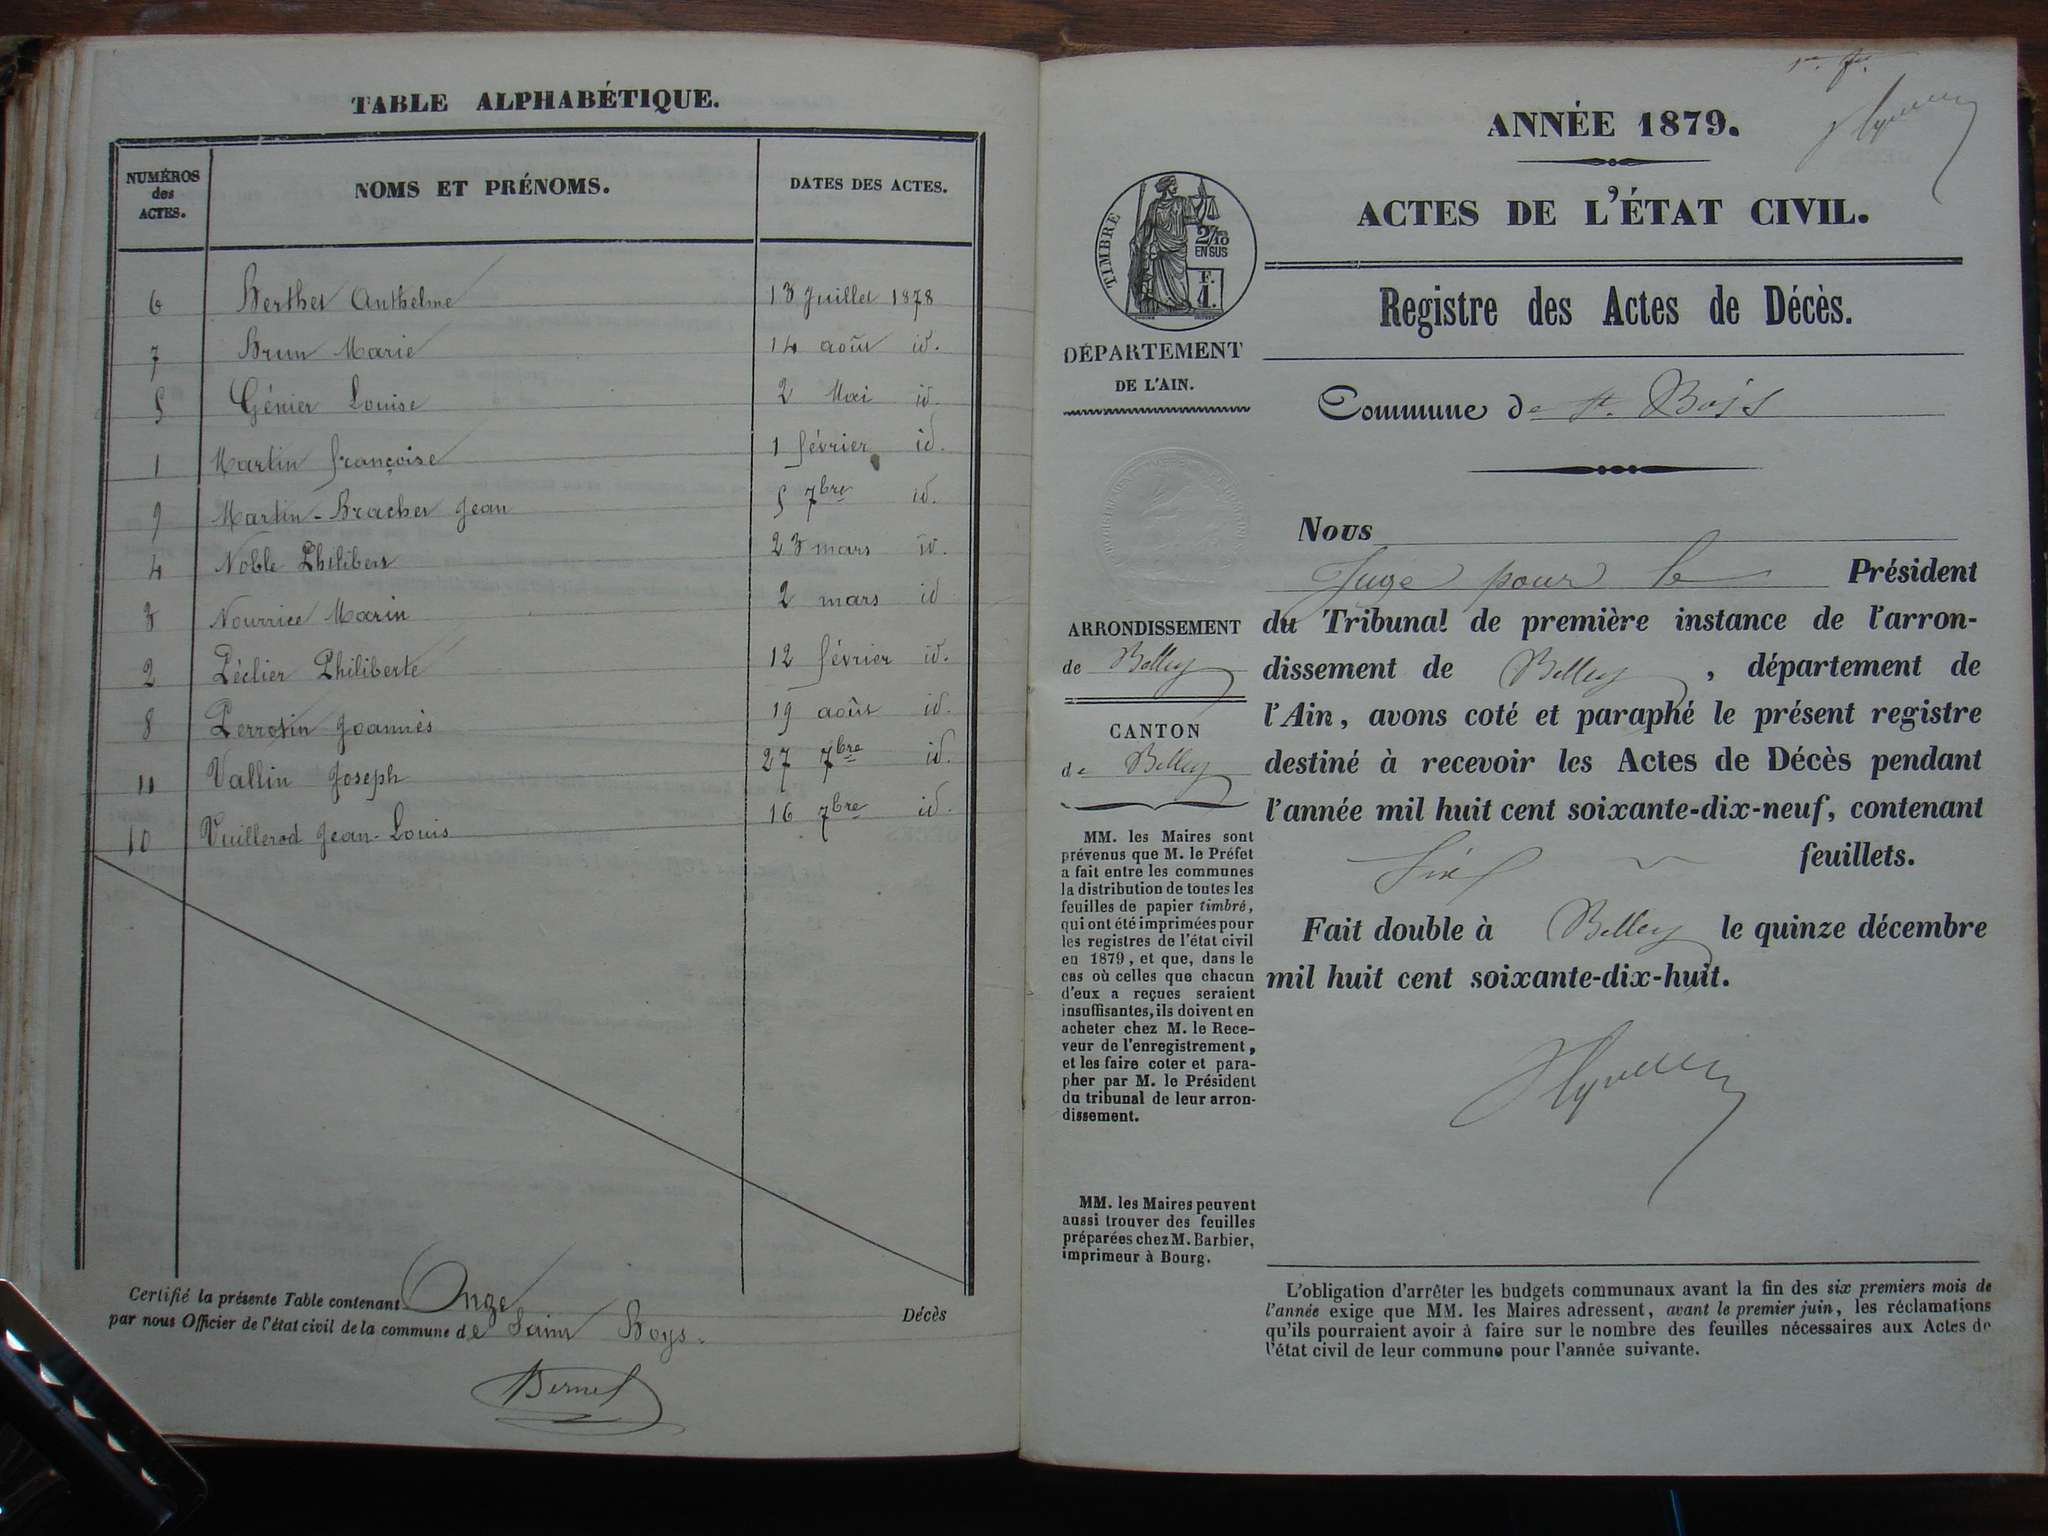 TABLE ALPHABÉTIQUE.
NUMÉROS des ACTES. NOMS ET PRÉNOMS. DATES DES ACTES.
6 Berthet Anthelme 13 Juillet 1878
7 Brun Marie 14 août id.
5 Génier Louise 2 Mai id.
1 Martin françoise 1 février id.
9 Martin-Bracher Jean 5 7bre id.
4 Noble Philibert 23 mars id.
3 Nourrice Marin 2 mars id
2 Péclier Philiberte 12 février id.
8 Perrotin Joannès 19 août id.
11 Vallin Joseph 27 7bre id.
10 Vuillerod Jean-Louis 16 7bre id.
Certifié la présente Table contenant Onze Décès
par nous Officier de l'état civil de la commune de Saint Boys.
Bernel
ANNÉE 1879.
ACTES DE L'ÉTAT CIVIL.
TIMBRE
2/10
EN SUS
F.
1.
Registre des Actes de Décès.
DÉPARTEMENT
DE L'AIN.
Commune de St. Bois
Nous
Juge pour le Président
du Tribunal de première instance de l'arron-
dissement de Belley, département de
l'Ain, avons coté et paraphé le présent registre
destiné à recevoir les Actes de Décès pendant
l'année mil huit cent soixante-dix-neuf, contenant
Six feuillets.
Fait double à Belley le quinze décembre
mil huit cent soixante-dix-huit.
ARRONDISSEMENT
de Belley
CANTON
de Belley
MM. les Maires sont
prévenus que M. le Préfet
a fait entre les communes
la distribution de toutes les
feuilles de papier timbré,
qui ont été imprimées pour
les registres de l'état civil
en 1879, et que, dans le
cas où celles que chacun
d'eux a reçues seraient
insuffisantes, ils doivent en
acheter chez M. le Rece-
veur de l'enregistrement,
et les faire coter et para-
pher par M. le Président
du tribunal de leur arron-
dissement.
MM. les Maires peuvent
aussi trouver des feuilles
préparées chez M. Barbier,
imprimeur à Bourg.
L'obligation d'arrêter les budgets communaux avant la fin des six premiers mois de
l'année exige que MM. les Maires adressent, avant le premier juin, les réclamations
qu'ils pourraient avoir à faire sur le nombre des feuilles nécessaires aux Actes de
l'état civil de leur commune pour l'année suivante.